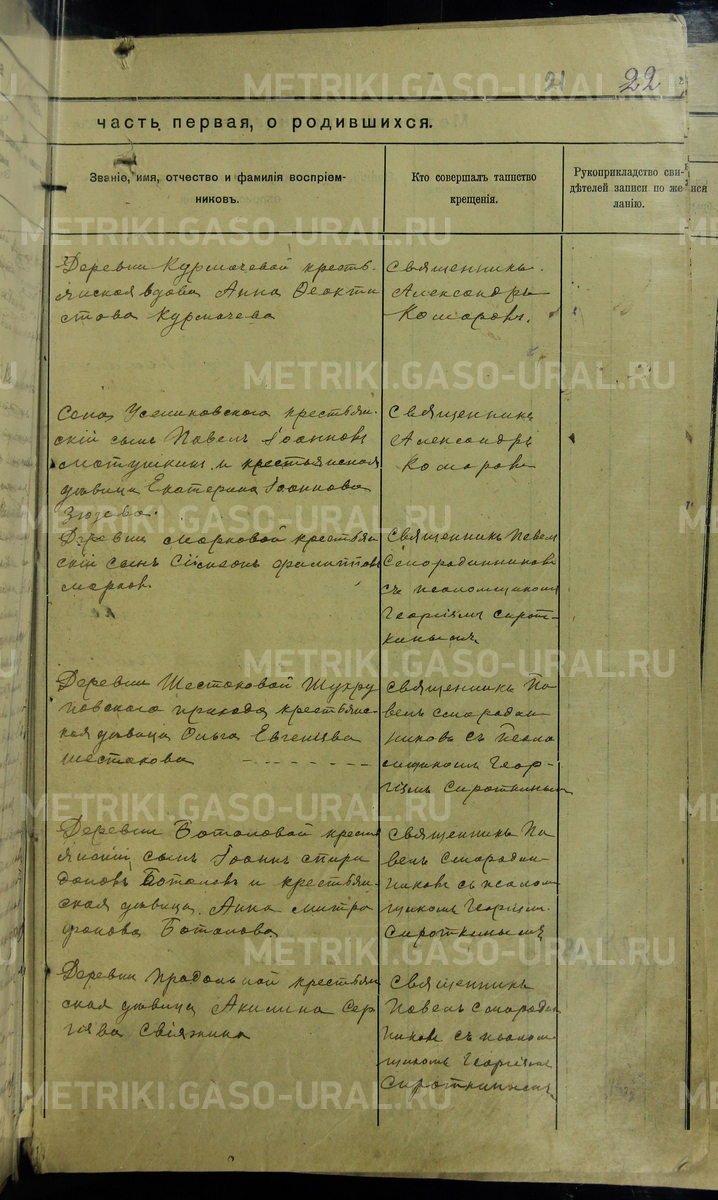 21 22
часть первая, о родившихся.
Званіе, имя, отчество и фамилія воспріем-
никовъ.
Кто совершалъ таинство
крещенія.
Рукоприкладство сви-
дѣтелей записи по же
ланію.
Деревни Курмачевой кресть-
янская вдова Анна Ѳеокти
стова Курмачева
Священникъ
Александръ
Комаровъ.
Села Усениковскаго крестьян-
скій сынъ Павелъ Іоанновъ
Матушкинъ и крестьянская
дѣвица Екатерина Іоаннова
Зюзева.
Священникъ
Александръ
Комаровъ
Деревни Марковой крестьян
скій сынъ Сімеонъ Филипповъ
Марковъ.
Священникъ Павелъ
Смородинниковъ
съ псаломщикомъ
Георгіемъ Сирот-
кинымъ
Деревни Шестаковой Шухру
повскаго прихода крестьянс-
кая дѣвица Ольга Евгеніева
Шестакова
Священникъ Па
велъ Смородин
никовъ съ псало
мщикомъ Геор-
гіемъ Сироткинымъ
Деревни Боталовой кресть
янскій сынъ Іоаннъ Спири
доновъ Боталовъ и крестьян-
ская дѣвица Анна Митро
фанова Боталова
Священникъ Па
велъ Смородин-
никовъ съ псалом
щикомъ Георгіем
Сироткинымъ
Деревни крестьян
ская дѣвица Акилина Сер
гіева Свіяжина
Священникъ
Павелъ Смородин
никовъ съ псалом-
щикомъ Георгіемъ
Сироткинымъ
METRIKI.GASO-URAL.RU